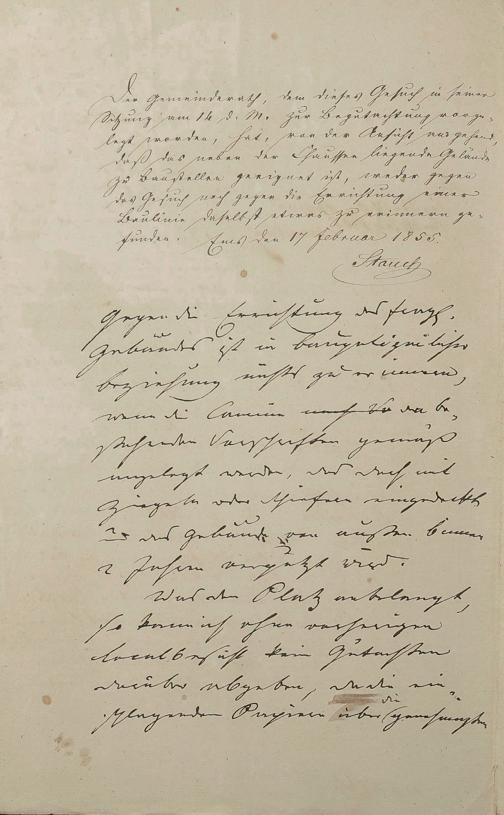 Der Gemeinderath, dem dieses Gesuch in seiner
Sitzung am 14 d. M. zur Begutachtung vorge-
legt worden, hat, von der Ansicht ausgehend,
daß das neben der Chaussee liegende Gelände
zu Baustellen geeignet ist, weder gegen
das Gesuch noch gegen die Errichtung einer
Baulinie daselbst etwas zu erinnern ge-
funden. Ems den 17 Februar 1855.
Stauch
Gegen die Errichtung des fragl.
Gebäudes ist in baupolizeilicher
Beziehung nichts zu erinnern,
wenn die Camine den be-
stehenden Vorschriften gemäß
angelegt werden, das Dach mit
Ziegeln oder Schiefern eingedeckt
das Gebäude von außen binnen
2 Jahren verputzt wird.
Was den Platz anbelangt,
so kann ich ohne vorherigen
Localbesicht kein Gutachten
darüber abgeben, da die ein-
schlagenden Papiere über die genehmigten